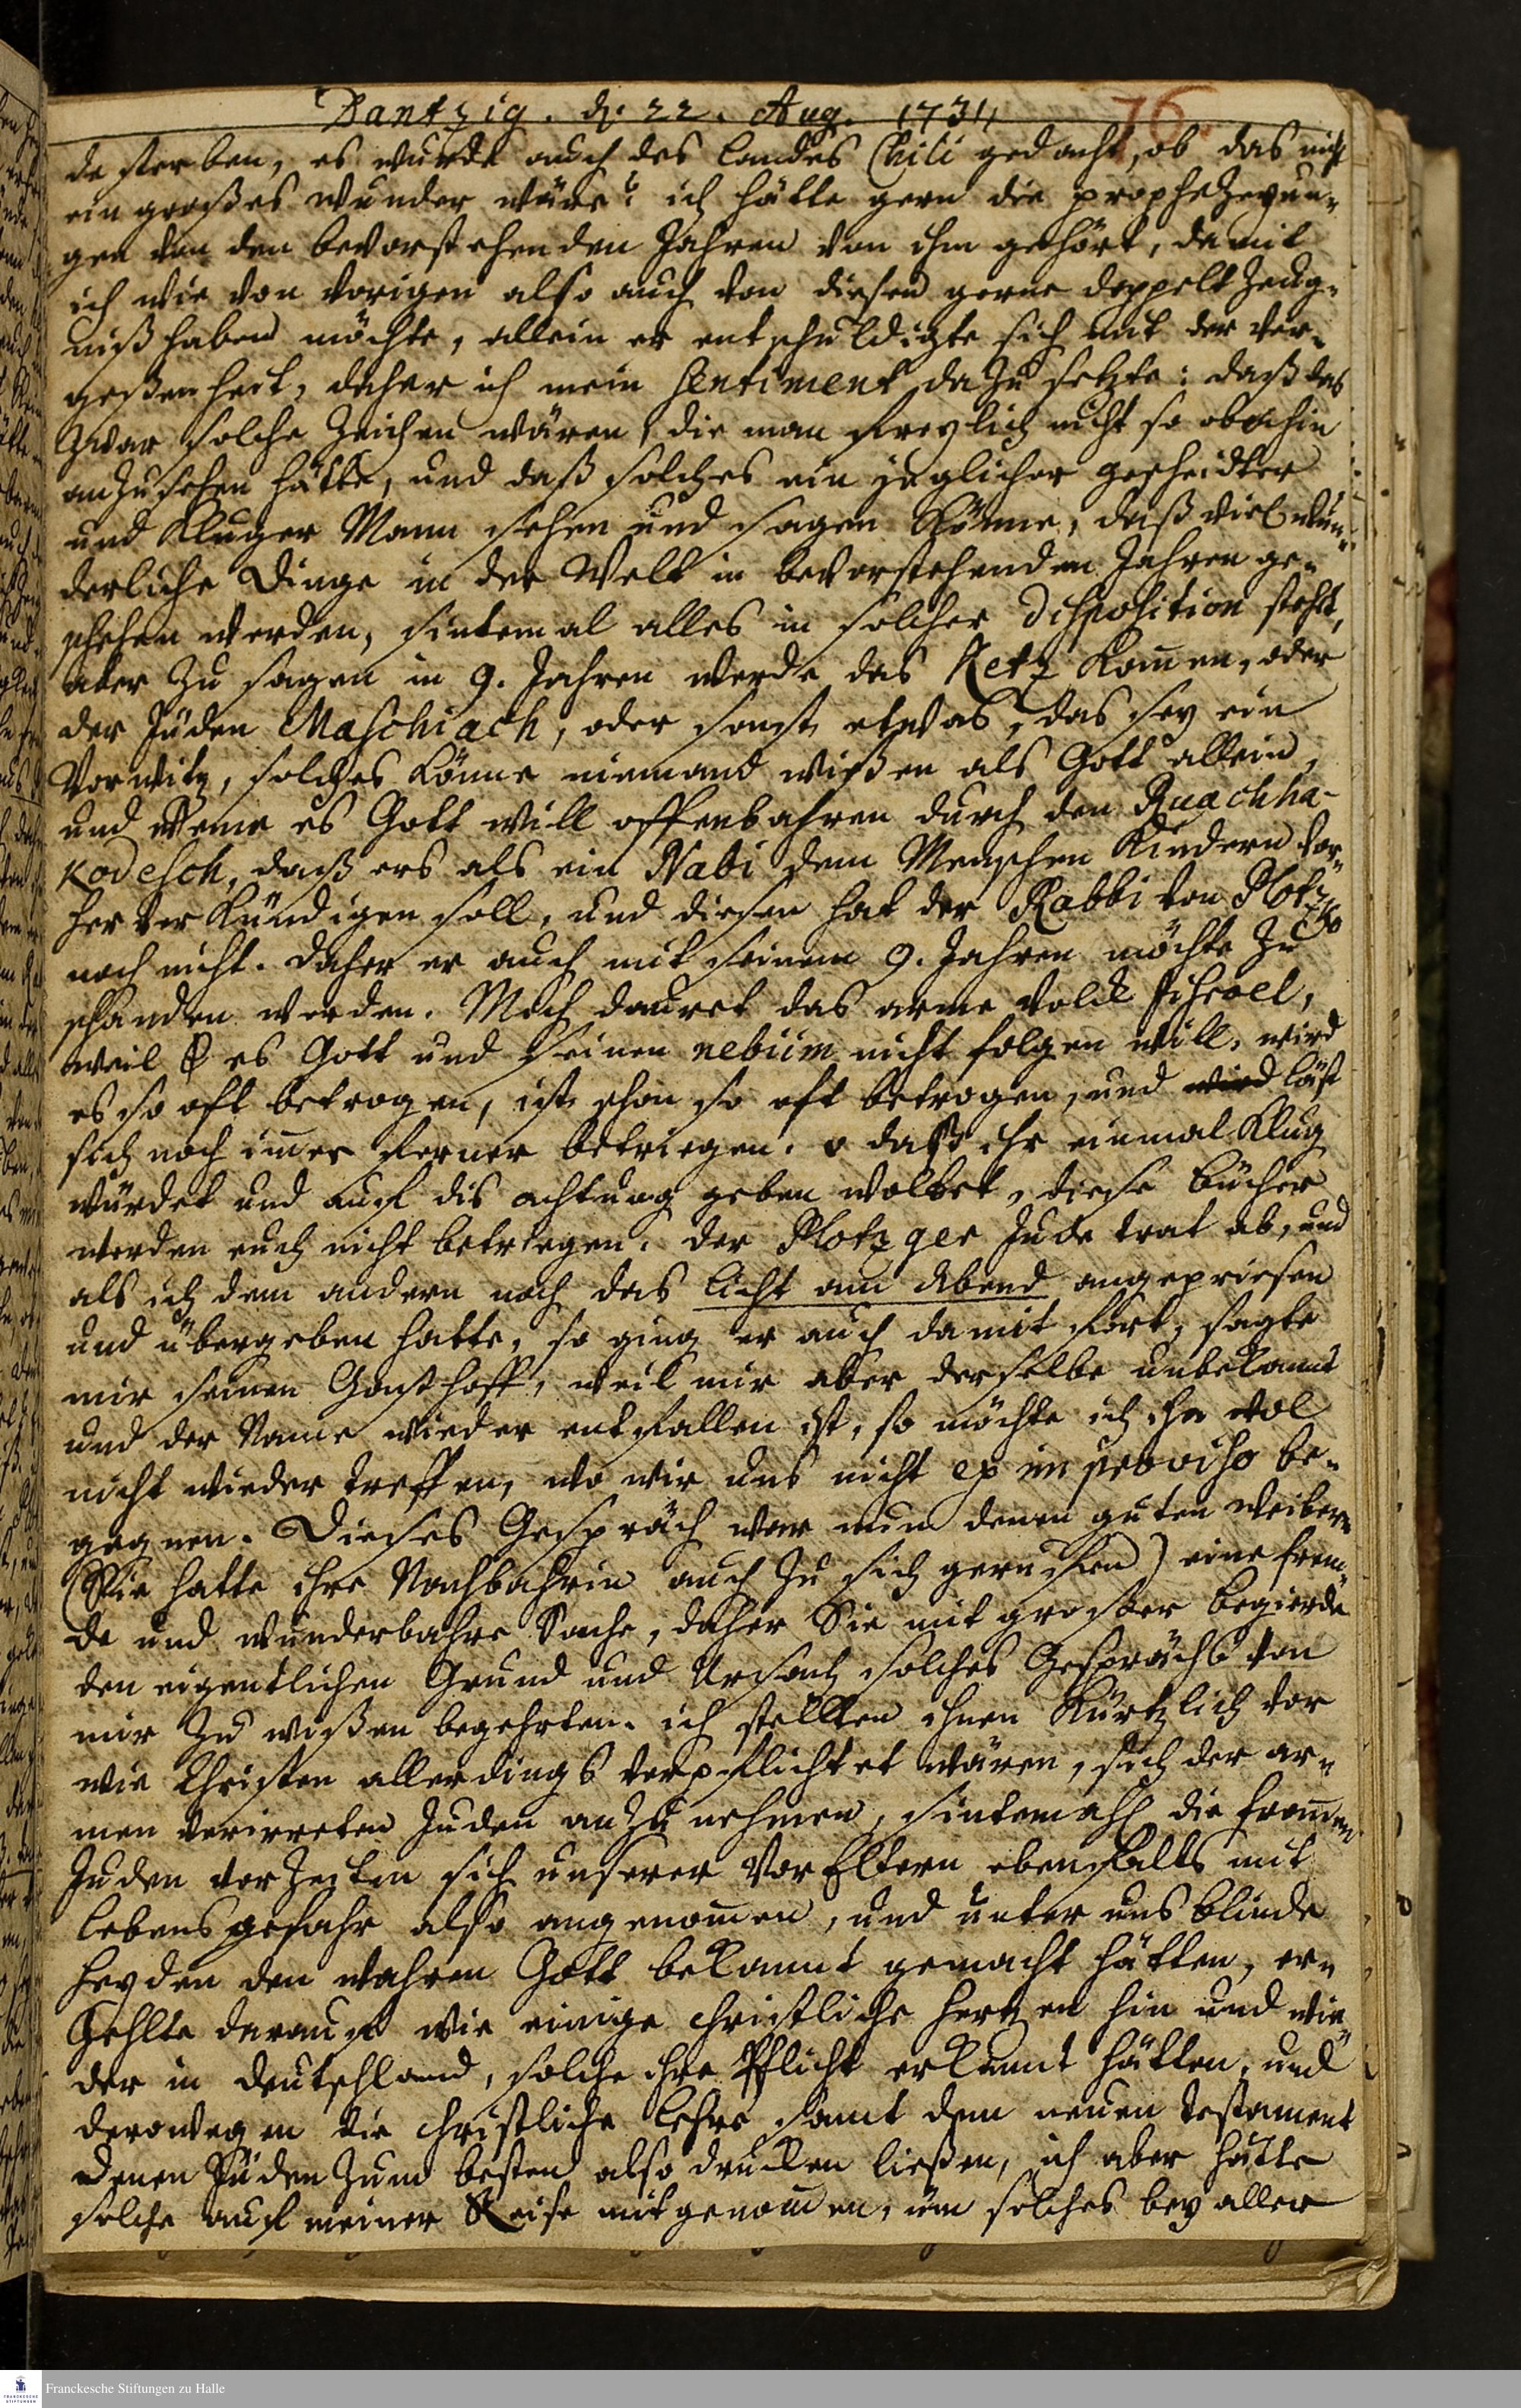 Dantzig. d. 22. Aug. 1731
76.
de sterben, es wurde auch des Landes Chili gedacht, ob das nicht
ein großes Wunder wäre? ich hätte gern die prophezeyun-
gen von den bevorstehenden Jahren von ihm gehört, damit
ich wie von vorigen also auch von diesen gerne doppelt Zeug-
niß haben möchte, allein er entschuldigte sich mit der Ver-
geßenheit, daher ich mein Sentiment dazu setzte: daß das
zwar solche Zeichen wären, die man freylich nicht so obenhin
anzusehen hätte, und daß solches ein jeglicher gescheidter
und kluger Mann sehen und sagen könne, daß viel wun-
derliche Dinge in der Welt in bevorstehenden Jahren ge-
schehen werden, sintemal alles in solcher Disposition steht,
aber zu sagen in 9. Jahren werde das Ketz kom̄en, oder
der Jüden Maschiach, oder sonst etwas, das sey ein
Vorwitz, solches könne niemand wißen als Gott allein,
und Weme es Gott will offenbahren durch den Ruach ha-
kodesch, daß ers als ein Nabi dem Menschen Kindern vor-
her verkündigen soll, und diesen hat der Rabbi von Plotzko
noch nicht. daher er auch mit seinem 9. Jahren möchte zu
schanden werden. Mich dauret das arme Volck Jisroel,
weil es Gott und seinen nebiim nicht folgen will, wird
es so oft betrogen, ist schon so oft betrogen, und wird läst
sich noch im̄er ferner betriegen. o daß ihr einmal klug
würdet und auf dis achtung geben woltet, diese bücher
werden euch nicht betriegen. der Plotzger Jude trat ab, und
als ich dem andern noch das Licht am Abend angepriesen
und übergeben hatte, so ging er auch damit fort, sagte
mir seinen Gasthoff, weil mir aber derselbe unbekannt
und der Name wieder entfallen ist, so möchte ich ihn wol
nicht wieder treffen, wo wir uns nicht ex improviso be-
gegnen. Dieses Gespräch war nun denen guten Weibern
(Sie hatte ihre Nachbahrin auch zu sich geruffen) eine frem-
de und wunderbahre Sache, daher Sie mit großer begierde
den eigentlichen Grund und Ursach solches Gesprächs von
mir zu wißen begehrten. ich stellten ihnen kürtzlich vor
wie Christen allerdings verpflichtet wären, sich der ar-
men verirreten Juden anzunehmen, sintemahl die from̄en
Juden vor Zeiten sich unserer VorEltern ebenfalls mit
lebensgefahr also angenom̄en, und unter uns blinde
Heyden den wahren Gott bekannt gemacht hätten, er-
zehlte darauf wie einige christliche Hertzen hin und wie-
der in Deutschland, solche ihre Pflicht erkannt hätten, und
derowegen die christliche Lehre samt dem neuen Testament
denen Jüden zum besten also drucken ließen, ich aber hätte
solche auf meiner Reise mitgenom̄en, um solches bey aller
Franckesche Stiftungen zu Halle